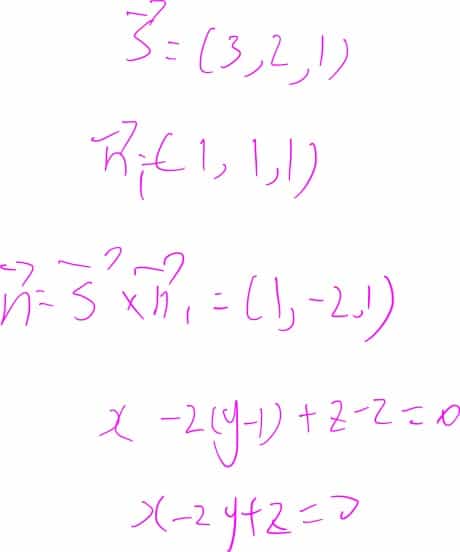 s⃗ = (3,2,1)
n⃗₁ = (1,1,1)
n⃗ = s⃗ × n⃗₁ = (1,-2,1)
x -2(y-1) + z-2 = 0
x-2y+z=0